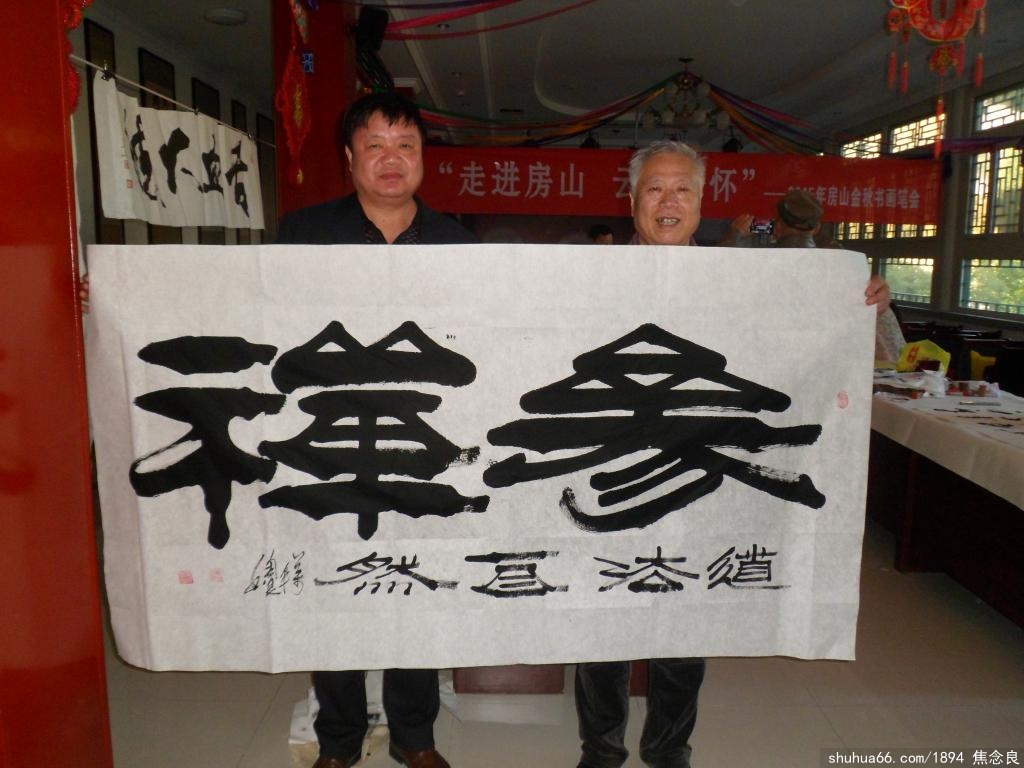 “走进房山 云 怀”—2015年房山金秋书画笔会
参禅
道法自然
shuhua66.com/1894 焦念良